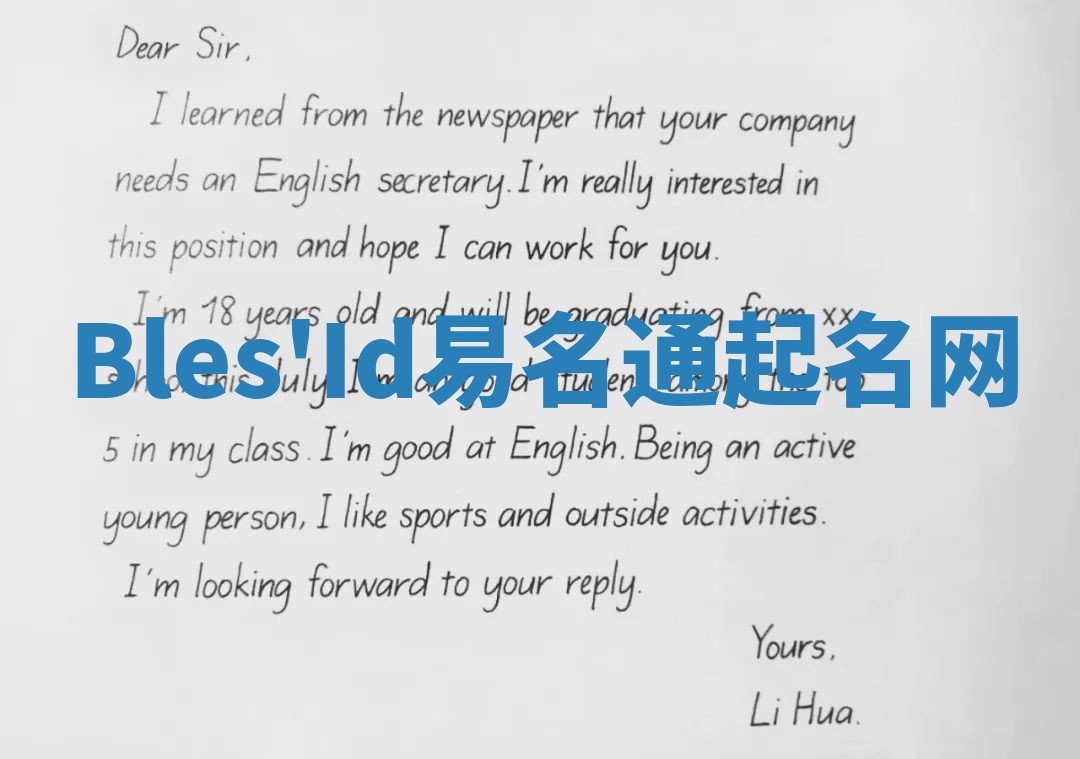 Dear Sir,
I learned from the newspaper that your company
needs an English secretary. I'm really interested in
this position and hope I can work for you.
I'm 18 years old and will be graduating from xx
Bles'Id易名通起名网
school this July. I'm a good student among the top
5 in my class. I'm good at English. Being an active
young person, I like sports and outside activities.
I'm looking forward to your reply.
Yours,
Li Hua.